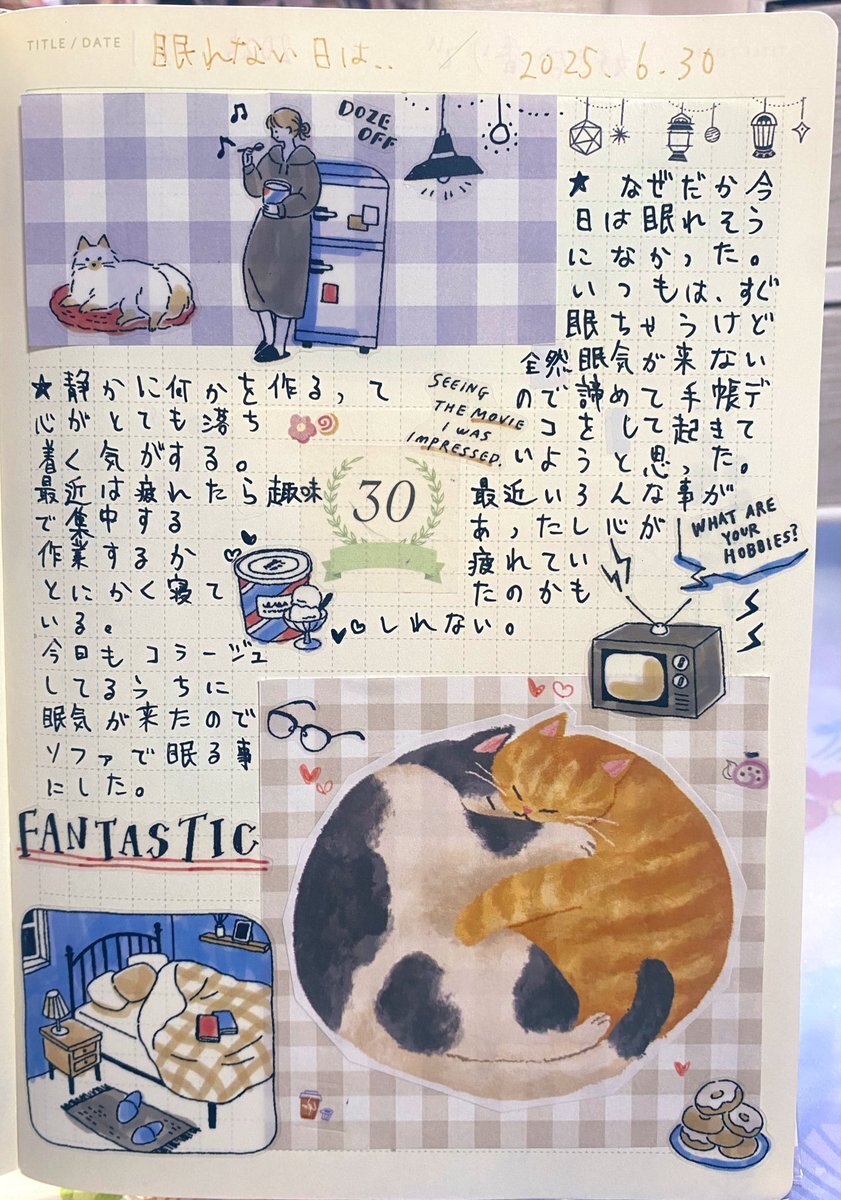 TITLE / DATE
眠れない日は..
2025.6.30
DOZE
OFF
★ なぜだか今
日は眠れそう
になかった。
いつもは、すぐ
眠ちゃうけど
全然眠気が来ない
ので諦めて手帳デ
コをして起きて
いようと思った。
最近いろんな事が
あったし心が
疲れてい
たのかも
しれない。
★静かに何かを作るって
心がとても落ち
着く気がする。
最近は疲れたら趣味
で集中する
作業するか
とにかく寝て
いる。
今日もコラージュ
してるうちに
眠気が来たので
ソファで眠る事
にした。
SEEING
THE MOVIE
I WAS
IMPRESSED.
30
WHAT ARE
YOUR
HOBBIES?
FANTASTIC